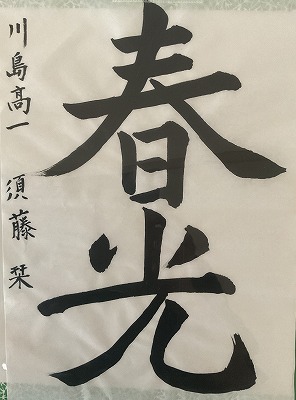 春光
川島高一 須藤 栞